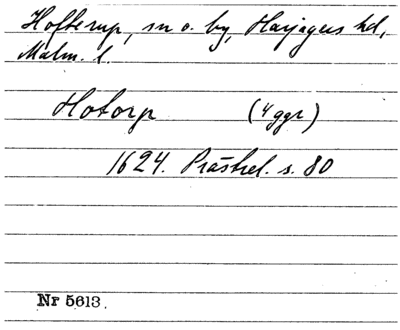 Hofterup, sn o. by, Harjagers hd,
Malm. l.
Hotorp (4 ggr)
1624. Prästrel. s. 80
Nr 5613.